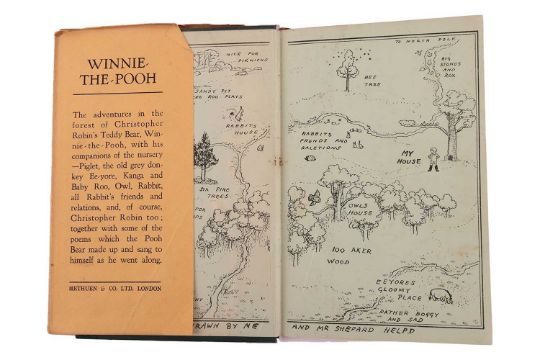 WINNIE-
THE-POOH
The adventures in the
forest of Christopher
Robin's Teddy Bear, Win-
nie-the-Pooh, with his
companions of the nursery
—Piglet, the old grey don-
key Ee-yore, Kanga and
Baby Roo, Owl, Rabbit,
all Rabbit's friends and
relations, and, of course,
Christopher Robin too;
together with some of the
poems which the Pooh
Bear made up and sang to
himself as he went along.
METHUEN & CO. LTD. LONDON
NICE FOR
PICNICKS
SANDY PIT
ROO PLAYS
RABBITS
HOUSE
SIX PINE
TREES
FOR
DRAWN BY ME
TO NORTH POLE
BIG
STONES
AND
ROX
BEE
TREE
RABBITS
FRENDS AND
RALETIONS
MY
HOUSE
OWLS
HOUSE
100 AKER
WOOD
EEYORES
GLOOMY
PLACE
RATHER BOGGY
AND SAD
AND MR SHEPARD HELPD